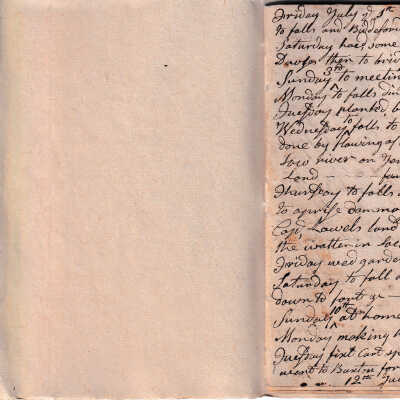 Friday July y 1st
to falls and Biddeford
Saturday hoed some
Davfes then to brid
Sunday 3rd to meetin
Monday to falls din
Tuesday planted b
Wednesday to falls to
done by flowing of
Saco river on Yor
Land — — fau
Thursday to falls
to aprise dammo
Capt Lowels land
the watter in Sac
Friday wed garde
Saturday to fall a
down to font ye —
Sunday 10th at home
Monday making h
Tuesday fixt Cart sp
went to Buxton for
12th Ju